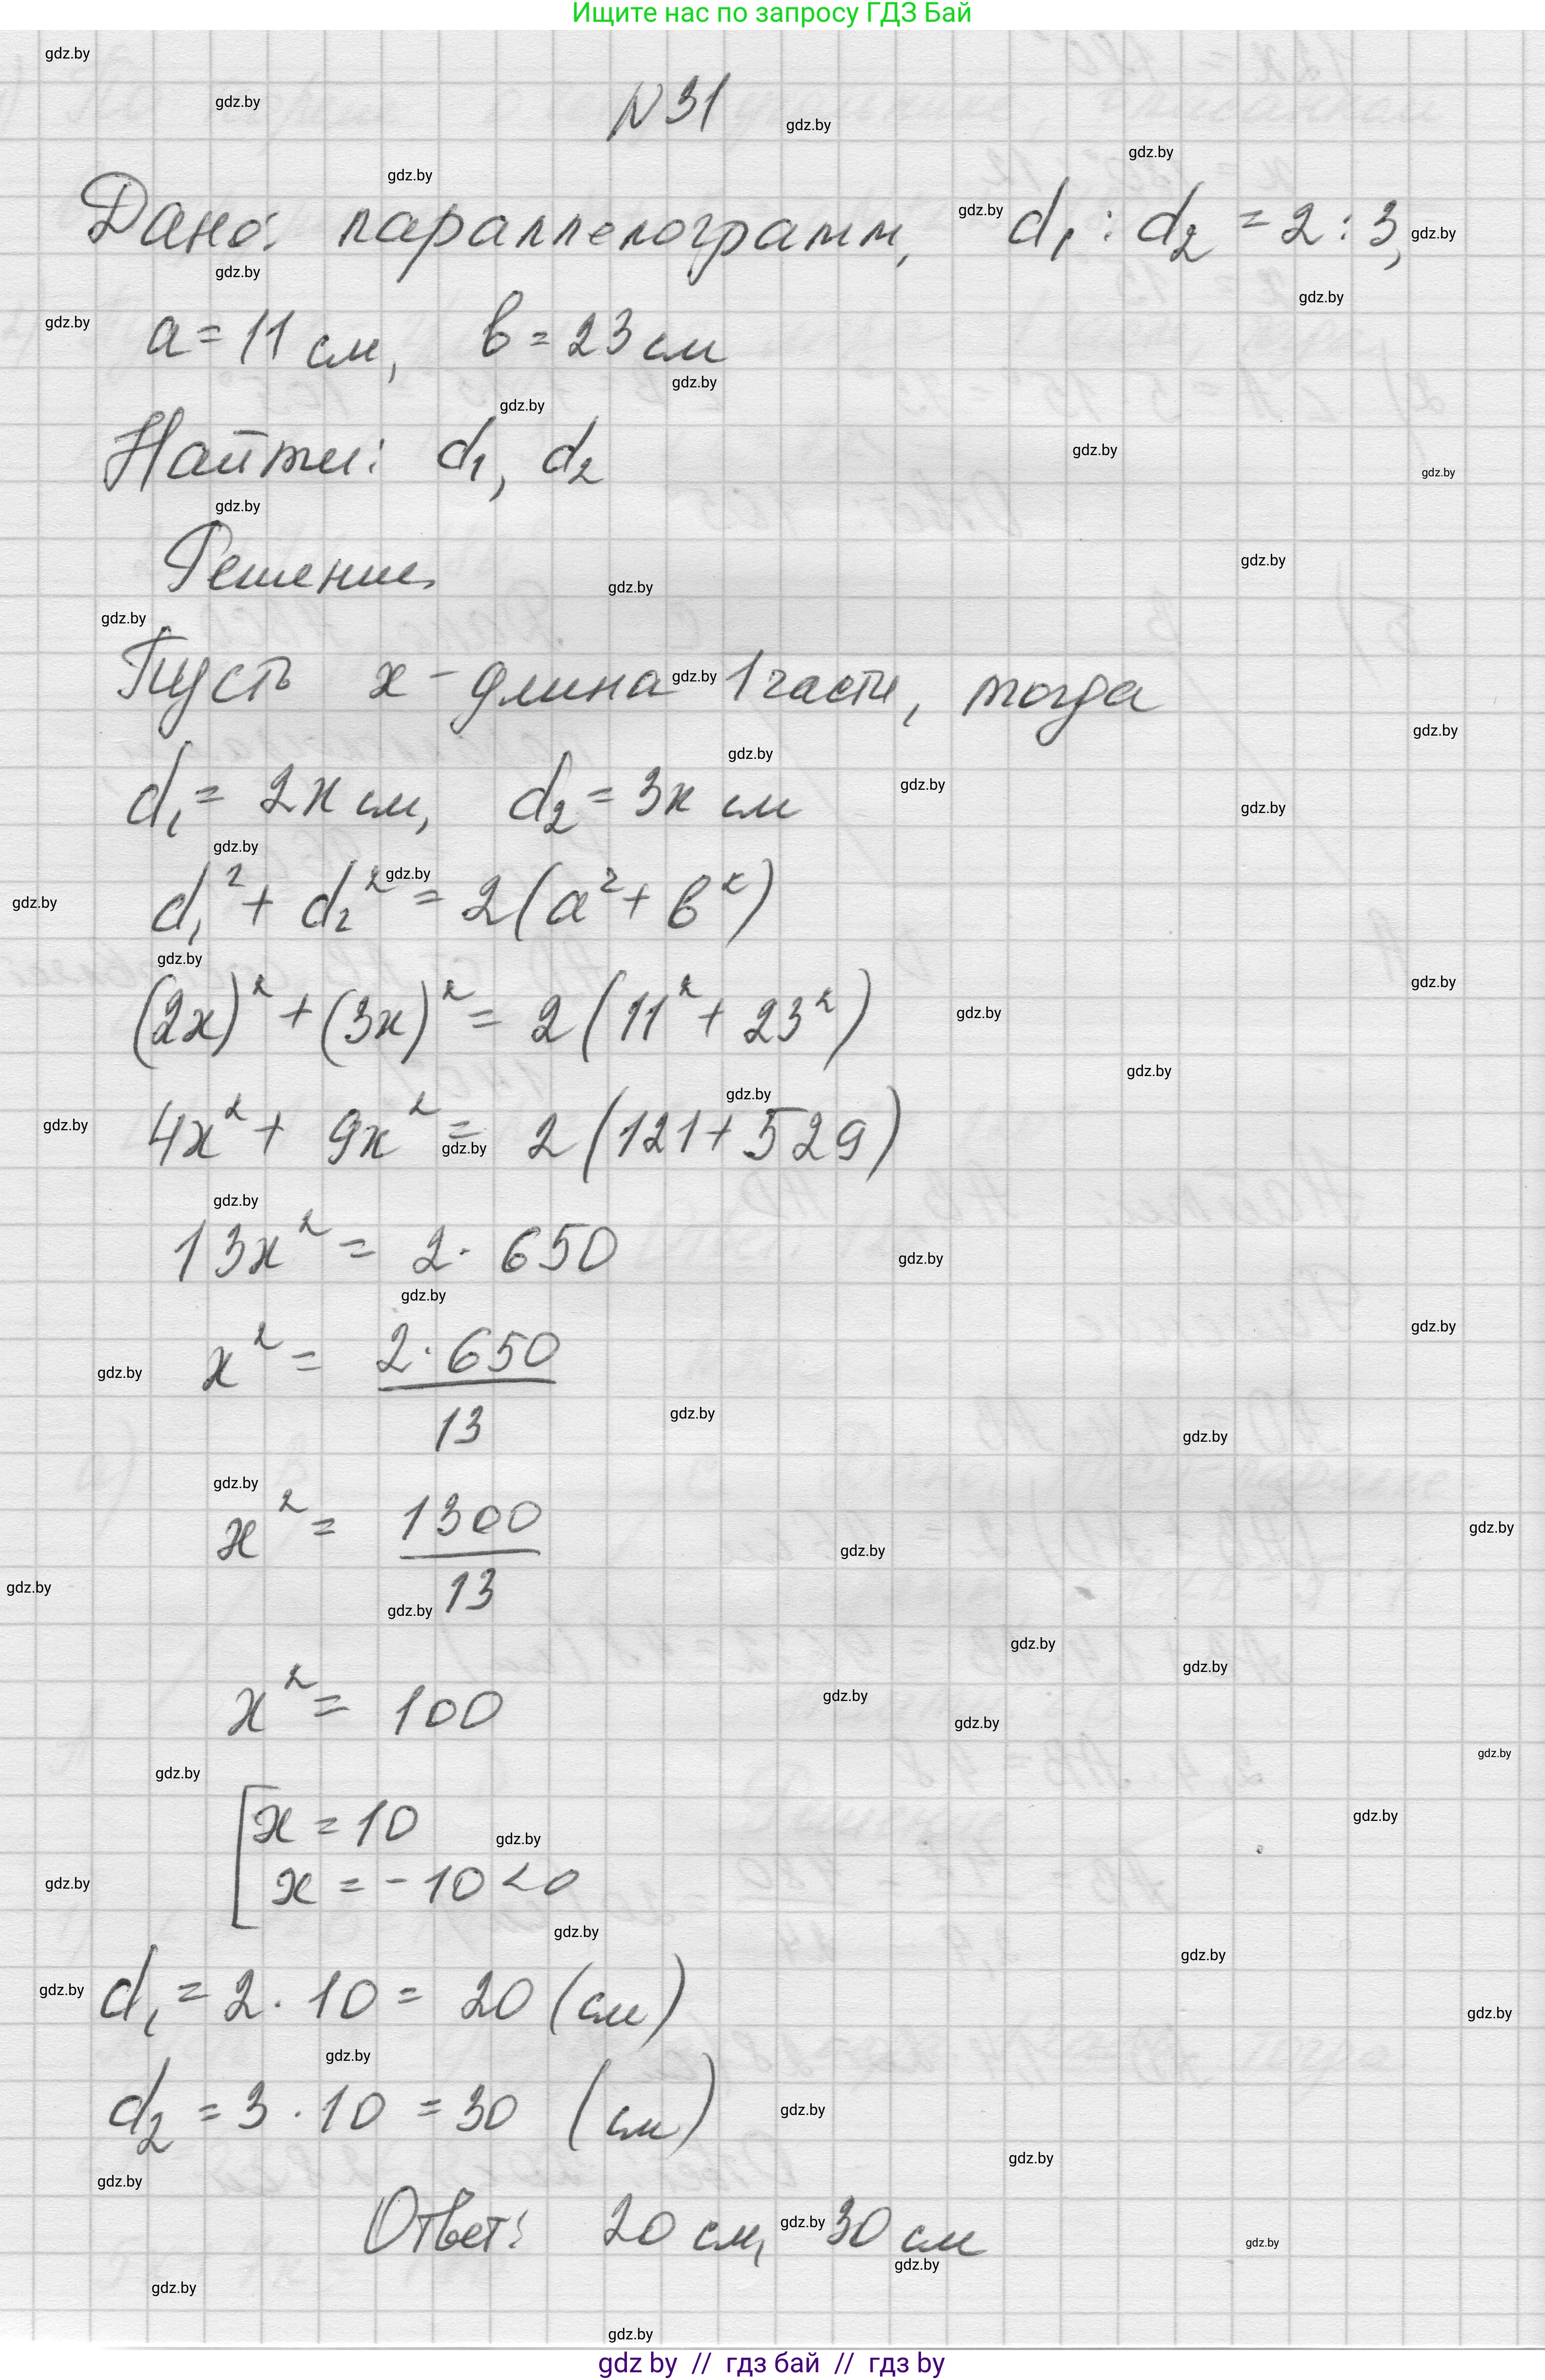 Ищите нас по запросу ГДЗ Бай
N 31
Дано: параллелограмм, d₁ : d₂ = 2 : 3,
a = 11 см, b = 23 см
Найти: d₁, d₂
Решение
Пусть x - длина 1 части, тогда
d₁ = 2x см, d₂ = 3x см
d₁² + d₂² = 2(a² + b²)
(2x)² + (3x)² = 2(11² + 23²)
4x² + 9x² = 2(121 + 529)
13x² = 2 · 650
x² = 2 · 650 / 13
x² = 1300 / 13
x² = 100
[x = 10
x = -10 < 0
d₁ = 2 · 10 = 20 (см)
d₂ = 3 · 10 = 30 (см)
Ответ: 20 см, 30 см
gdz by // гдз бай // гдз by